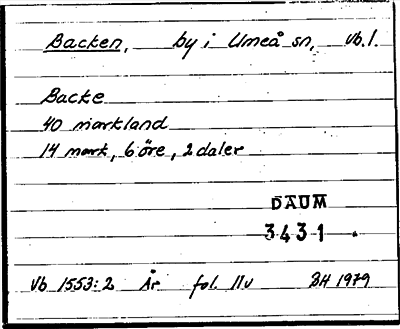 Backen, by i Umeå sn, Vb.l.
Backe
40 markland
14 mark, 6 öre, 2 daler
DAUM
3431
Vb 1553:2 År fol. 11v BH 1979